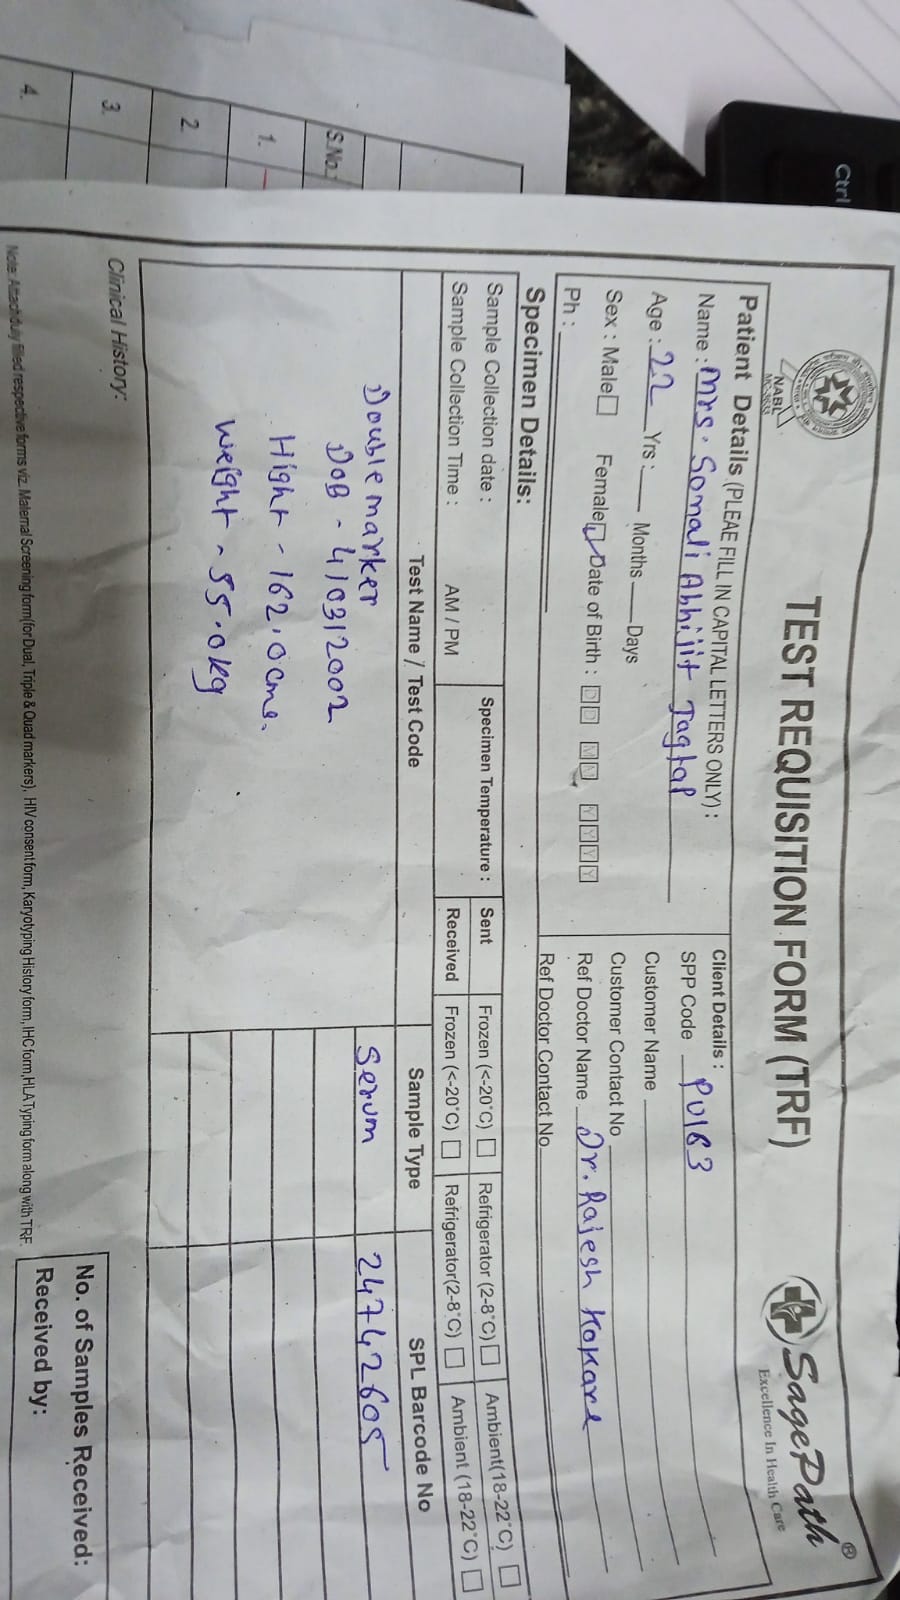 Ctrl
S.No.
1.
2.
3.
4.
NABL
TEST REQUISITION FORM (TRF)
SagePath®
Excellence In Health Care
Patient Details (PLEAE FILL IN CAPITAL LETTERS ONLY) :
Name : Mrs. Somali Abhijit Jagtap
Age : 22 Yrs : Months Days
Sex : Male Female Date of Birth : DD MM YYYY
Ph :
Client Details :
SPP Code PU163
Customer Name
Customer Contact No
Ref Doctor Name Dr. Rajesh Kokare
Ref Doctor Contact No
Specimen Details:
Sample Collection date : Specimen Temperature : Sent Frozen (<-20°C) Refrigerator (2-8°C) Ambient(18-22°C)
Sample Collection Time : AM / PM Received Frozen (<-20°C) Refrigerator(2-8°C) Ambient (18-22°C)
Test Name / Test Code Sample Type SPL Barcode No
Double marker Serum 24742605
DOB - 4/03/2002
Hight - 162.0 cms.
Weight - 55.0kg
Clinical History:
No. of Samples Received:
Received by:
Note: Attach duly filled respective forms viz. Maternal Screening form(for Dual, Triple & Quad markers), HIV consent form, Karyotyping History form, IHC form, HLA Typing form along with TRF.